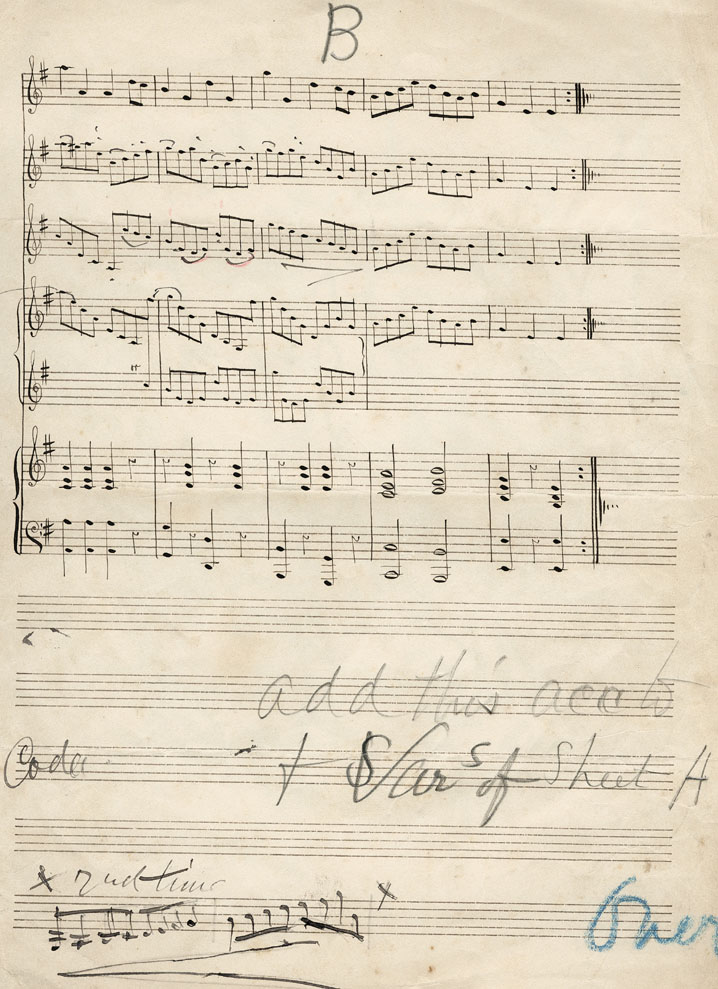 B
add this acc to
Coda + Vars of Sheet A
x 2nd time x
Over